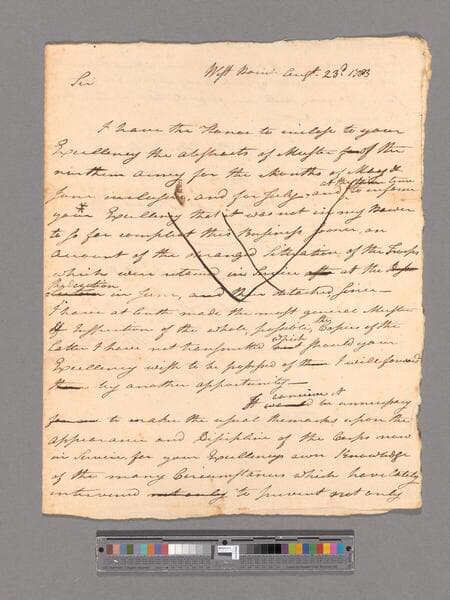 West Point Augt. 23d. 1783
Sir
I have the Honor to inclose to your
Excellency the abstracts of Muster for of the
northern army for the Months of May &
June inclusive and for July and
at the same time
to inform
your Excellency that it was not in my Power
to so far compleat this Business sooner, on
account of the deranged Situation of the Troops
which were retained in Service at the
Reduction
in June, and their detached Since—
I have at last made the most general Muster
& Inspection of the whole, possible, the Copies of the
Latter I have not transmitted but which should your
Excellency wish to be possessed of them I will forward
them by another opportunity—
I conceive it
It would be unnecessary
for me to make the usual Remarks upon the
appearance and Disipline of the Corps now
in Service, for your Excellencys own Knowledge
of the many Circumstances which have lately
intervened not only to prevent not only